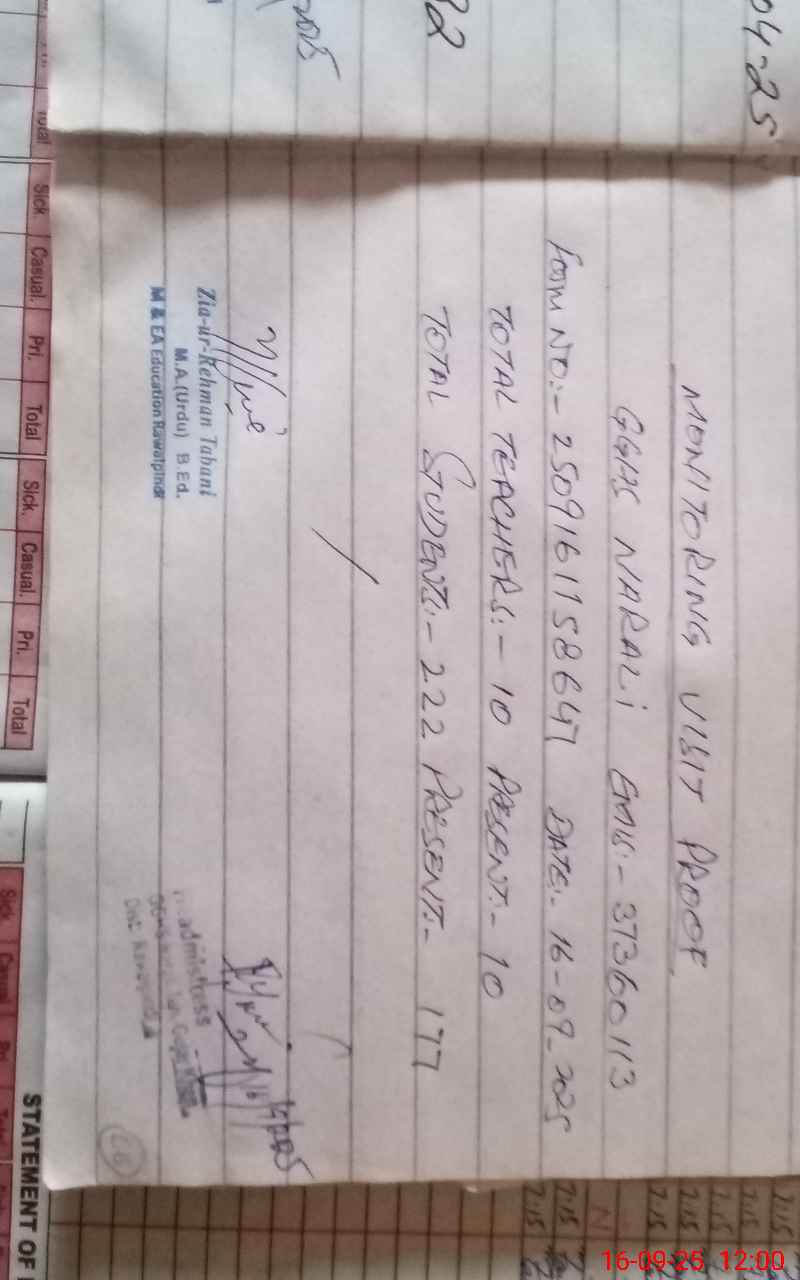 04-25
32
2025
MONITORING VISIT PROOF
GGHS NARALI EMIS:- 37360113
FORM NO:- 2509161158647 DATE:- 16-09-2025
TOTAL TEACHERS:- 10 PRESENT:- 10
TOTAL STUDENTS:- 222 PRESENT:- 177
Zia-ur-Rehman Tabani
M.A.(Urdu) B.Ed.
M & EA Education Rawalpindi
admistress
Total Sick. Casual. Pri. Total Sick. Casual. Pri. Total
STATEMENT OF
Sick Casual Pri
7:15 7:15 N 7:15 7:15 7:15 7:15 7:15
16-09-25 12:00